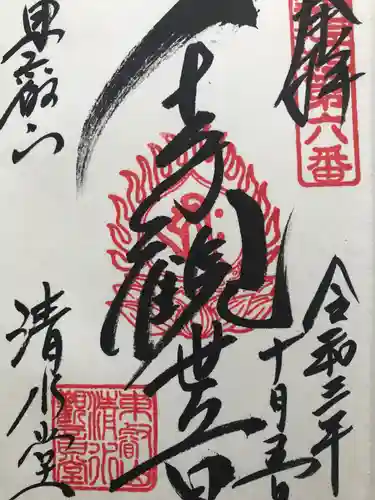 奉拝
第六番
令和三年
十月五日
千手觀世音
東叡山
清水堂
東叡山
清水
觀音堂